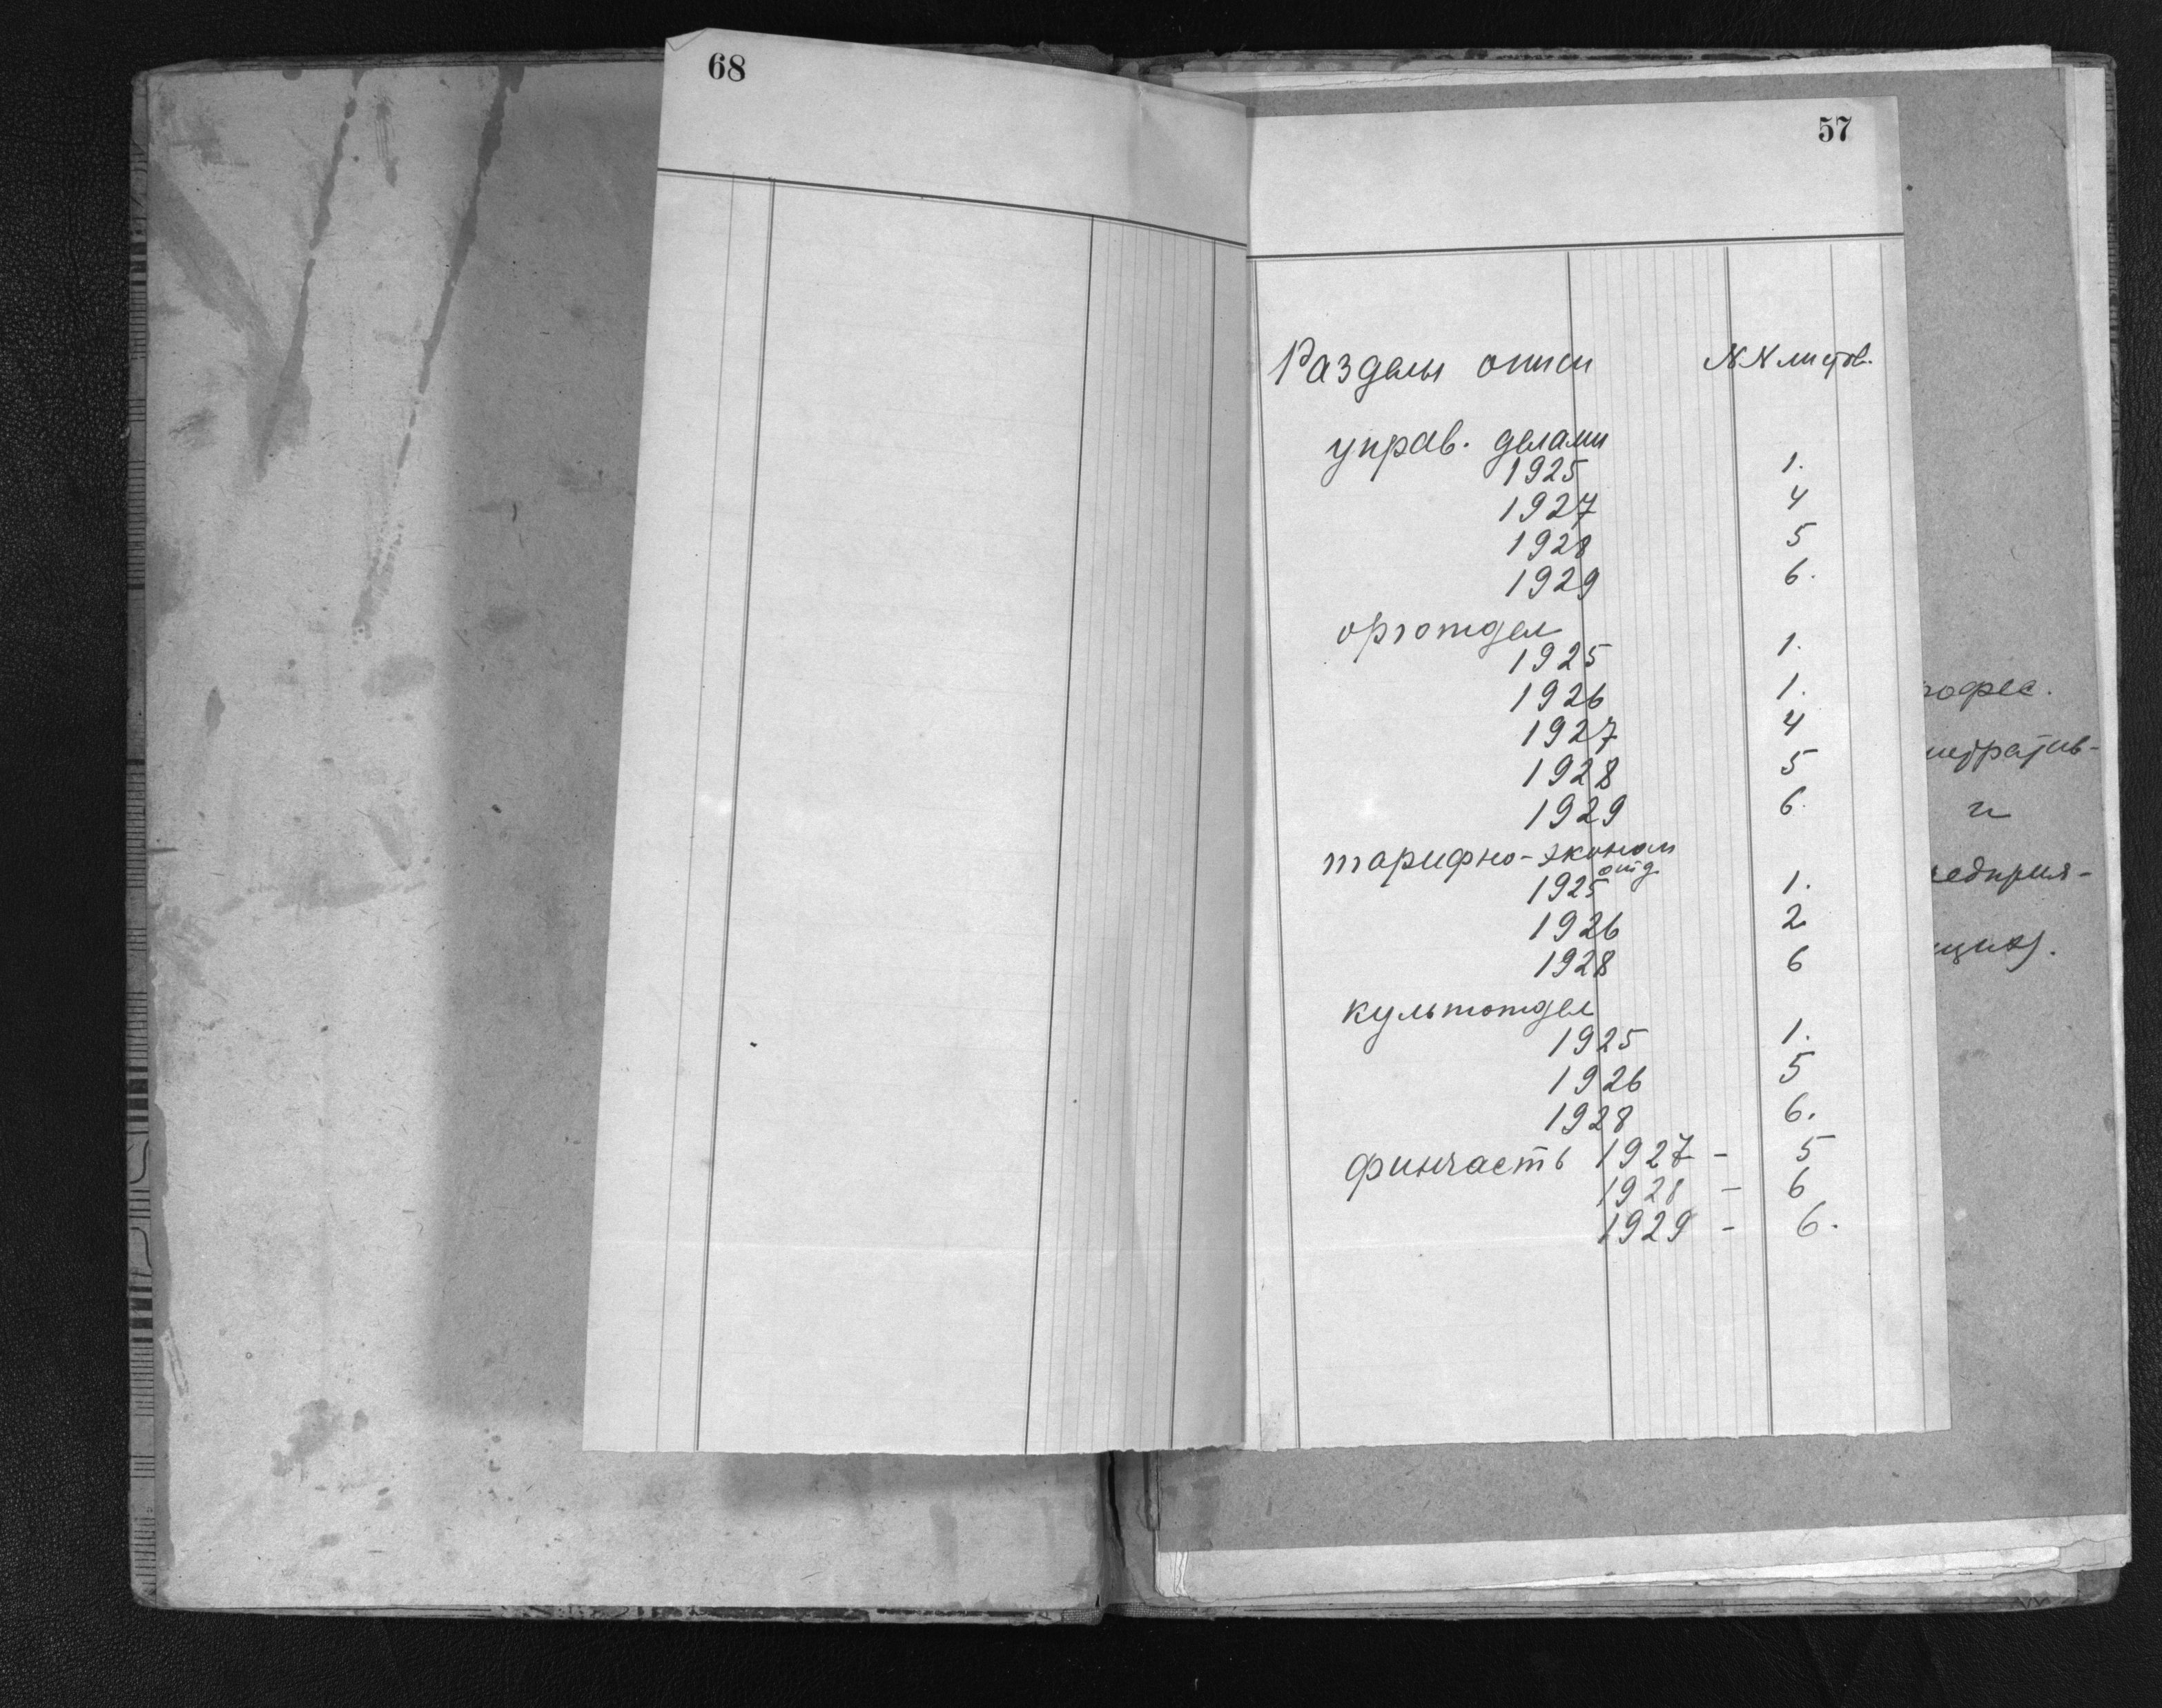 68
57
Разделы описи NN листов.
управ. делами
1925 1.
1927 4
1928 5
1929 6.
орготдел
1925 1.
1926 1.
1927 4
1928 5
1929 6.
тарифно-эконом
отд.
1925 1.
1926 2
1928 6
культотдел
1925 1.
1926 5
1928 6.
финчасть 1927 - 5
1928 - 6
1929 - 6.
и